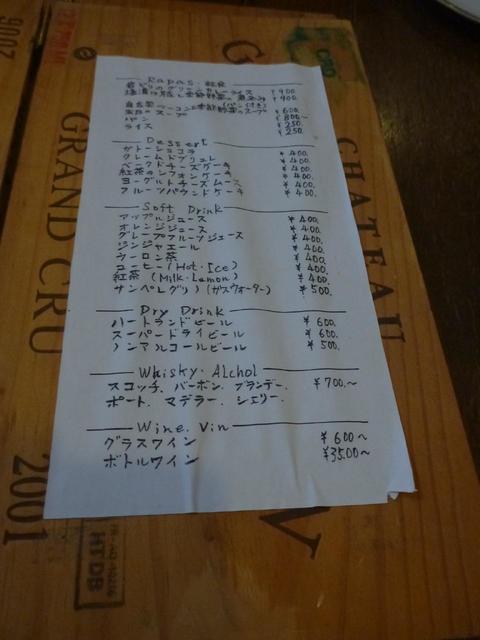 Rapas・軽食
若どりのグリーンカレーライス ¥900.
塩漬け豚と季節野菜の煮込み ¥900.
(パン付き)
自家製ベーコンと季節野菜のスープ ¥600.
本日のスープ ¥800〜
パン ¥250.
ライス ¥250.
Dessert
ガトーショコラ ¥400.
クレームドブリュレ ¥400.
ベークドチーズケーキ ¥400.
紅茶のシフォンケーキ ¥400.
ヨーグルトチーズムース ¥400.
フルーツパウンドケーキ ¥400.
Soft Drink
アップルジュース ¥400.
オレンジジュース ¥400.
グレープフルーツジュース ¥400.
ジンジャエール ¥400.
ウーロン茶 ¥400.
コーヒー(Hot・Ice) ¥400.
紅茶(Milk・Lemon) ¥400.
サンペレグリノ(ガスウォーター) ¥500.
Dry Drink
ハートランドビール ¥600.
スーパードライビール ¥600.
ノンアルコールビール ¥500.
Whisky・Alchol
スコッチ、バーボン、ブランデー、 ¥700.〜
ポート、マデラー、シェリー.
Wine.Vin
グラスワイン ¥600〜
ボトルワイン ¥3500〜
CHATEAU
GRAND CRU
2001
HTDB